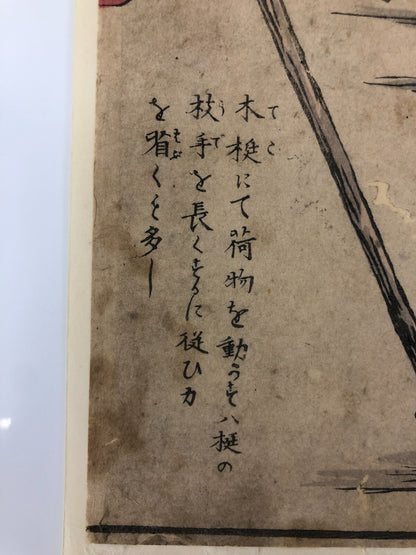 てこ
木梃にて荷物を動かすハ梃の
うで
杖手を長くするに従ひ力
はぶ
を省くこと多し